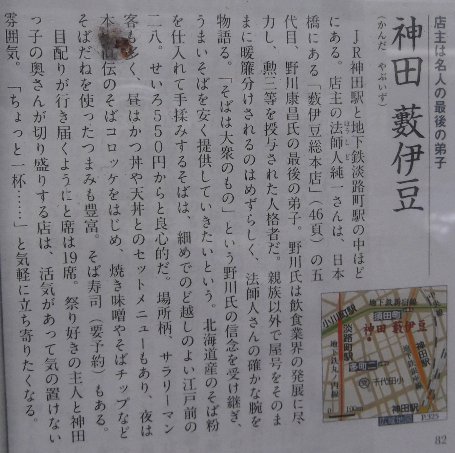 店主は名人の最後の弟子
神田 藪伊豆
（かんだ やぶいず）
ＪＲ神田駅と地下鉄淡路町駅の中ほど
にある。店主の法師人純一さんは、日本
橋にある「藪伊豆総本店」（46頁）の五
代目、野川康昌氏の最後の弟子。野川氏は飲食業界の発展に尽
力し、勲三等を授与された人格者だ。親族以外で屋号をそのま
まに暖簾分けされるのはめずらしく、法師人さんの確かな腕を
物語る。「そばは大衆のもの」という野川氏の信念を受け継ぎ、
うまいそばを安く提供していきたいという。北海道産のそば粉
を仕入れて手揉みするそばは、細めでのど越しのよい江戸前の
二八。せいろ550円からと良心的だ。場所柄、サラリーマン
客も多く、昼はかつ丼や天丼とのセットメニューもあり、夜は
本店直伝のそばコロッケをはじめ、焼き味噌やそばチップなど
そばだねを使ったつまみも豊富。そば寿司（要予約）もある。
目配りが行き届くようにと席は19席。祭り好きの主人と神田
っ子の奥さんが切り盛りする店は、活気があって気の置けない
雰囲気。「ちょっと一杯……」と気軽に立ち寄りたくなる。
地下鉄新宿線
小川町駅
須田町
神田 藪伊豆
淡路町駅
地下鉄丸ノ内線
多町二
千代田小
神田駅
0 100m
P.325
82